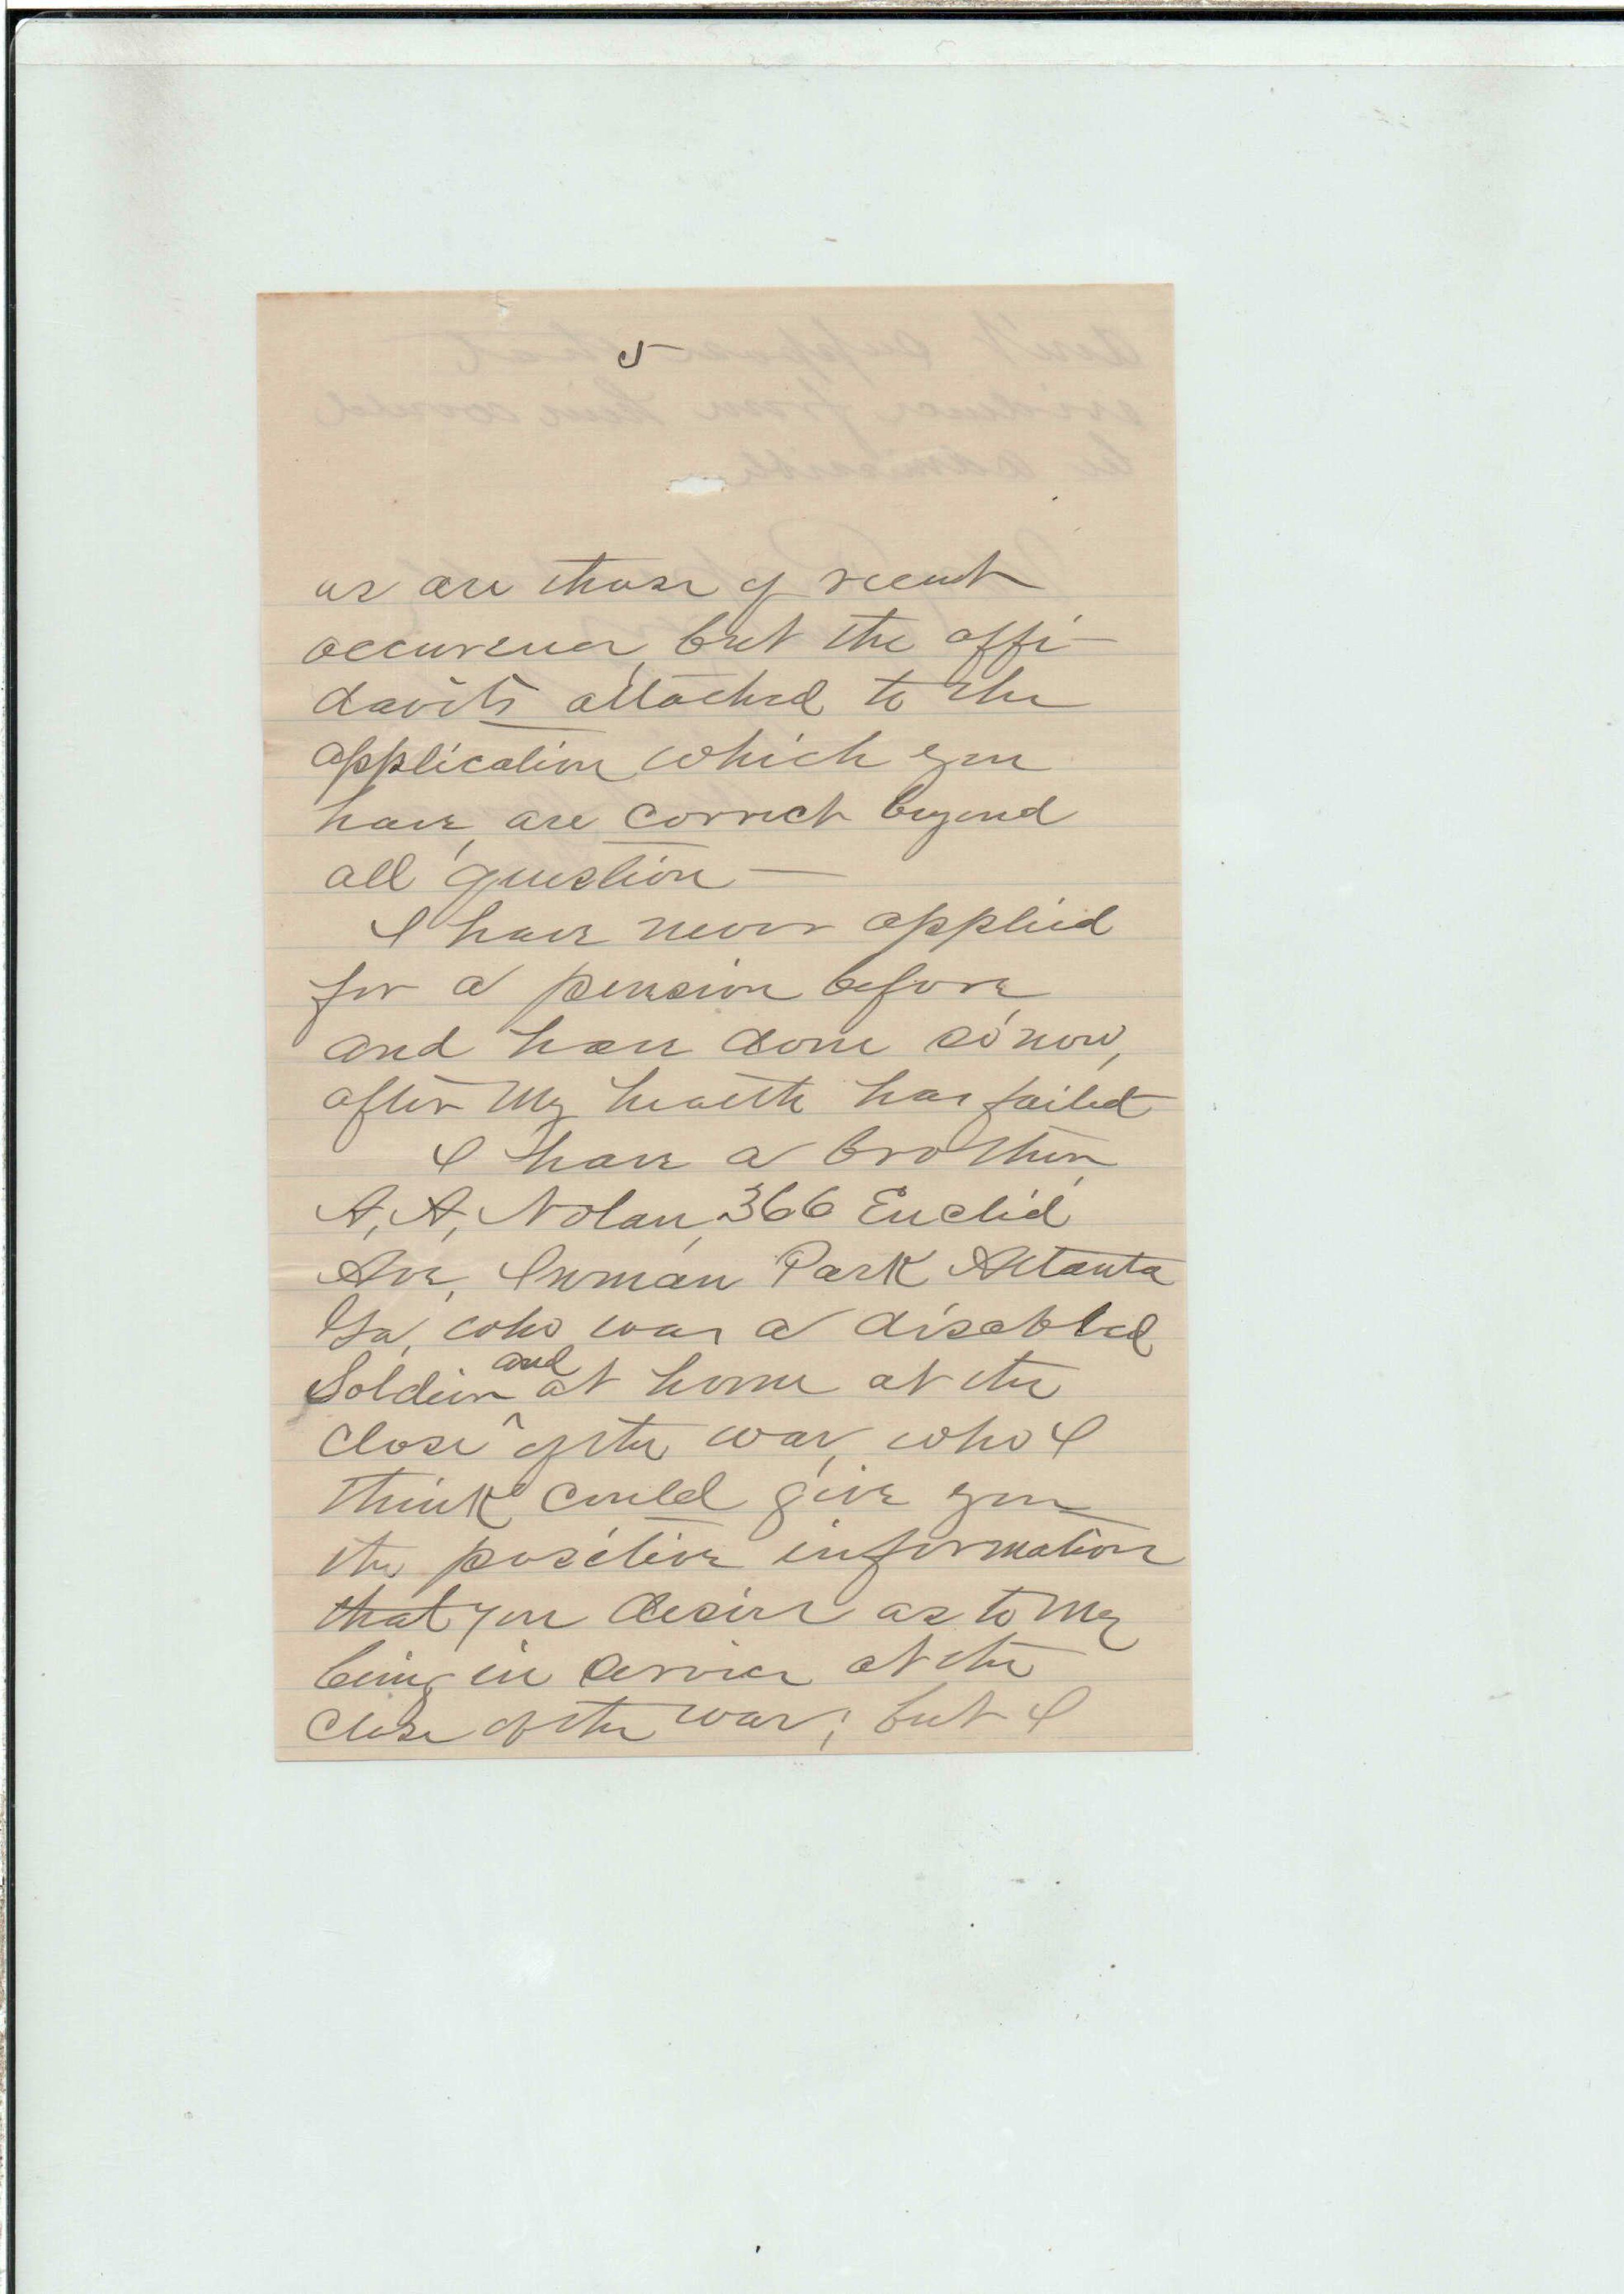 5
as are those of recent
occurence, but the affi-
davits attached to the
application which you
have, are correct beyond
all question —
I have never applied
for a pension before
and have done so now,
after my health has failed
I have a brother,
A, A, Nolan, 366 Euclid
Ave, Inman Park Atlanta
Ga, who was a disabled
Soldier and at home at the
close of the war, who I
think could give you
the positive information
that you desire as to my
being in service at the
close of the war; but I